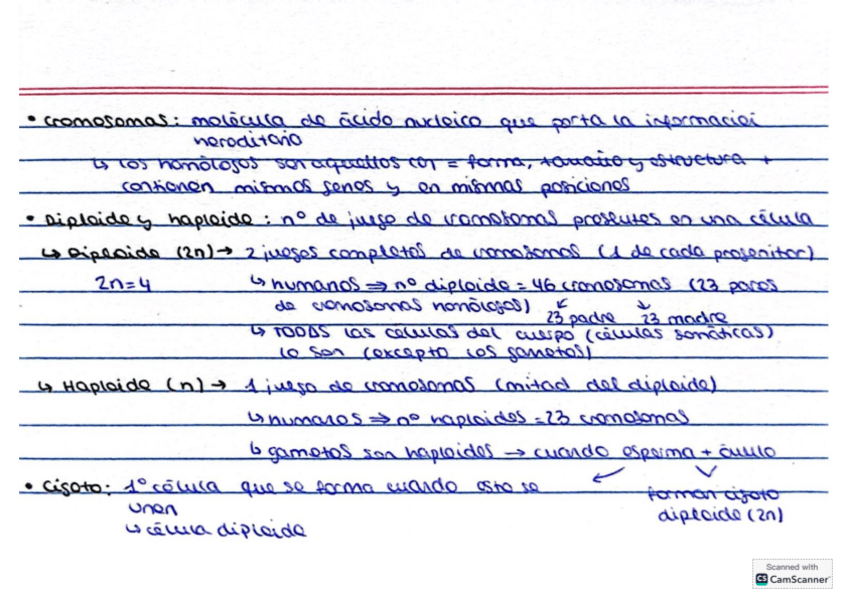 • cromosomas: molécula de ácido nucleico que porta la información
hereditaria
↳ los homólogos son aquellos con = forma, tamaño y estructura +
contienen mismos genes y en mismas posiciones
• Diploide y haploide: nº de juego de cromosomas presentes en una célula
↳ Diploide (2n) → 2 juegos completos de cromosomas (1 de cada progenitor)
2n=4 ↳ humanos ⇒ nº diploide = 46 cromosomas (23 pares
de cromosomas homólogos) 23 padre 23 madre
↳ TODAS las células del cuerpo (células somáticas)
lo son (excepto los gametos)
↳ Haploide (n) → 1 juego de cromosomas (mitad del diploide)
↳ humanos ⇒ nº haploides = 23 cromosomas
↳ gametos son haploides → cuando esperma + óvulo
• Cigoto: 1º célula que se forma cuando esto se
unen
↳ célula diploide
forman cigoto
diploide (2n)
Scanned with
CS CamScanner